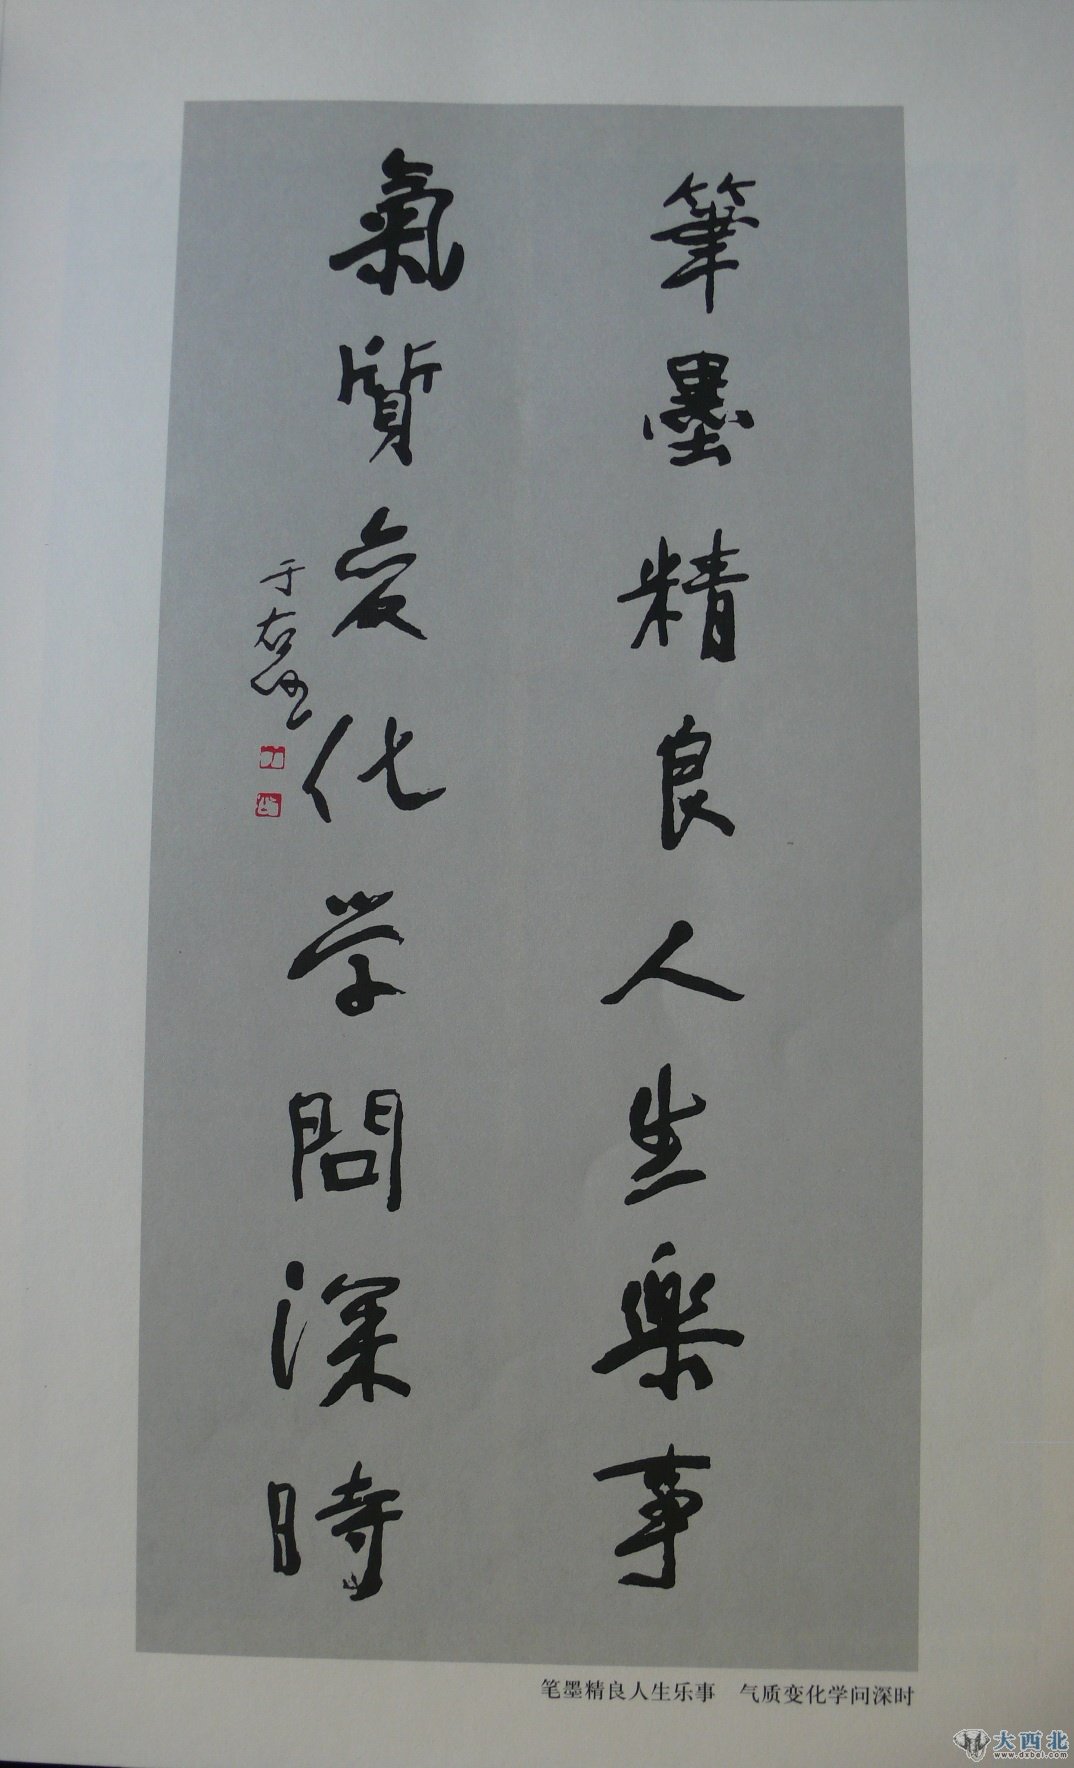 筆墨精良人生樂事
氣質变化学問深時
于右任
笔墨精良人生乐事　气质变化学问深时
大西北
www.dxbei.com